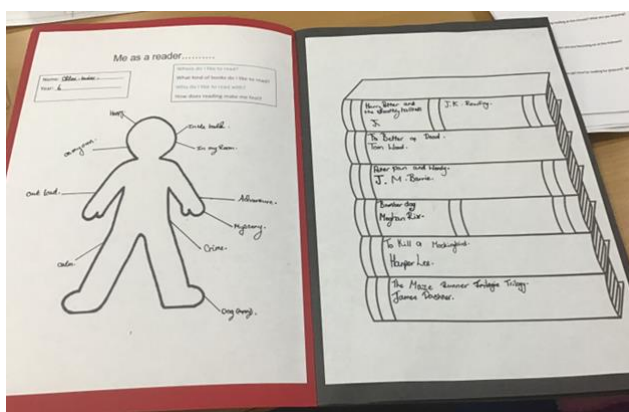 Me as a reader.........
Name:
Year: 6
Where do I like to read?
What kind of books do I like to read?
Who do I like to read with?
How does reading make me feel?
Happy
on my own.
in my room.
out loud.
Adventure.
Mystery.
Crime.
Calm.
Harry Potter and
the deathly hallows
J.K. Rowling.
J.
To Better up Dead.
Tom Wood.
Peter Pan and Wendy.
J. M. Barrie.
Bomber dog
Meghan Rix.
To Kill a Mockingbird.
Harper Lee.
The Maze Runner Trilogy.
James Dashner.